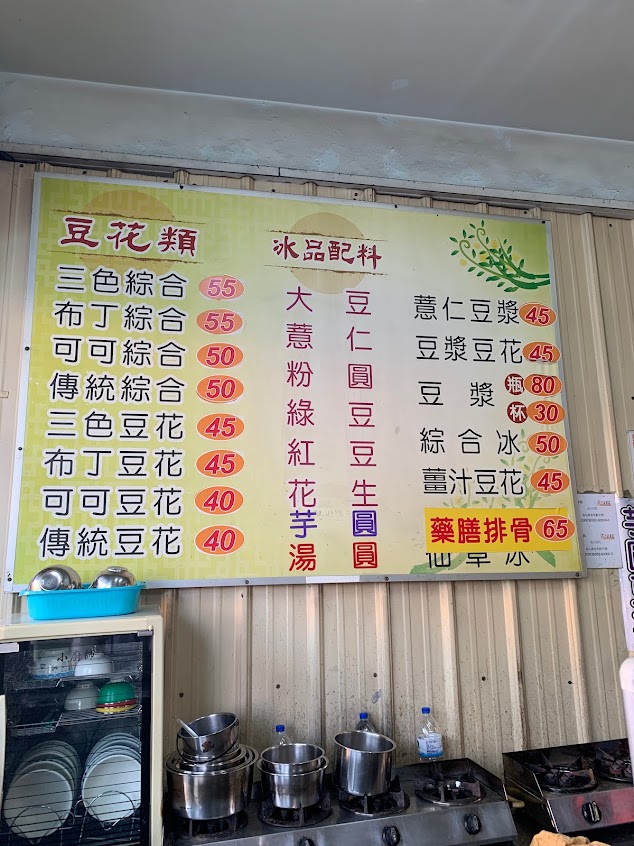 豆花類
三色綜合 55
布丁綜合 55
可可綜合 50
傳統綜合 50
三色豆花 45
布丁豆花 45
可可豆花 40
傳統豆花 40
冰品配料
大豆
薏仁
粉圓
綠豆
紅豆
花生
芋圓
湯圓
薏仁豆漿 45
豆漿豆花 45
豆漿 瓶 80
杯 30
綜合冰 50
薑汁豆花 45
藥膳排骨 65
仙草冰